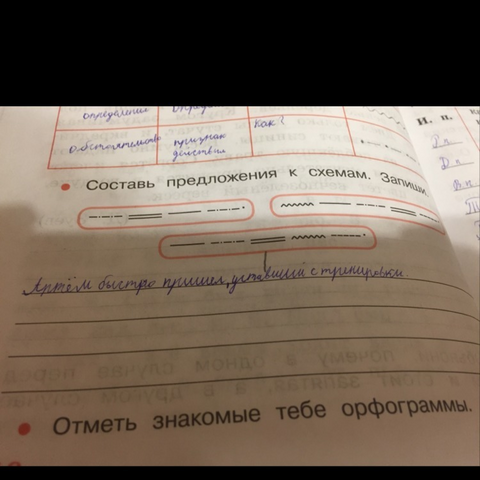 определение опреде
как?
Обстоятельство признак
действия
И. п.
Р.п
Д.п
В.п
• Составь предложения к схемам. Запиши.
Артём быстро пришел, уставший с тренировки.
• Отметь знакомые тебе орфограммы.